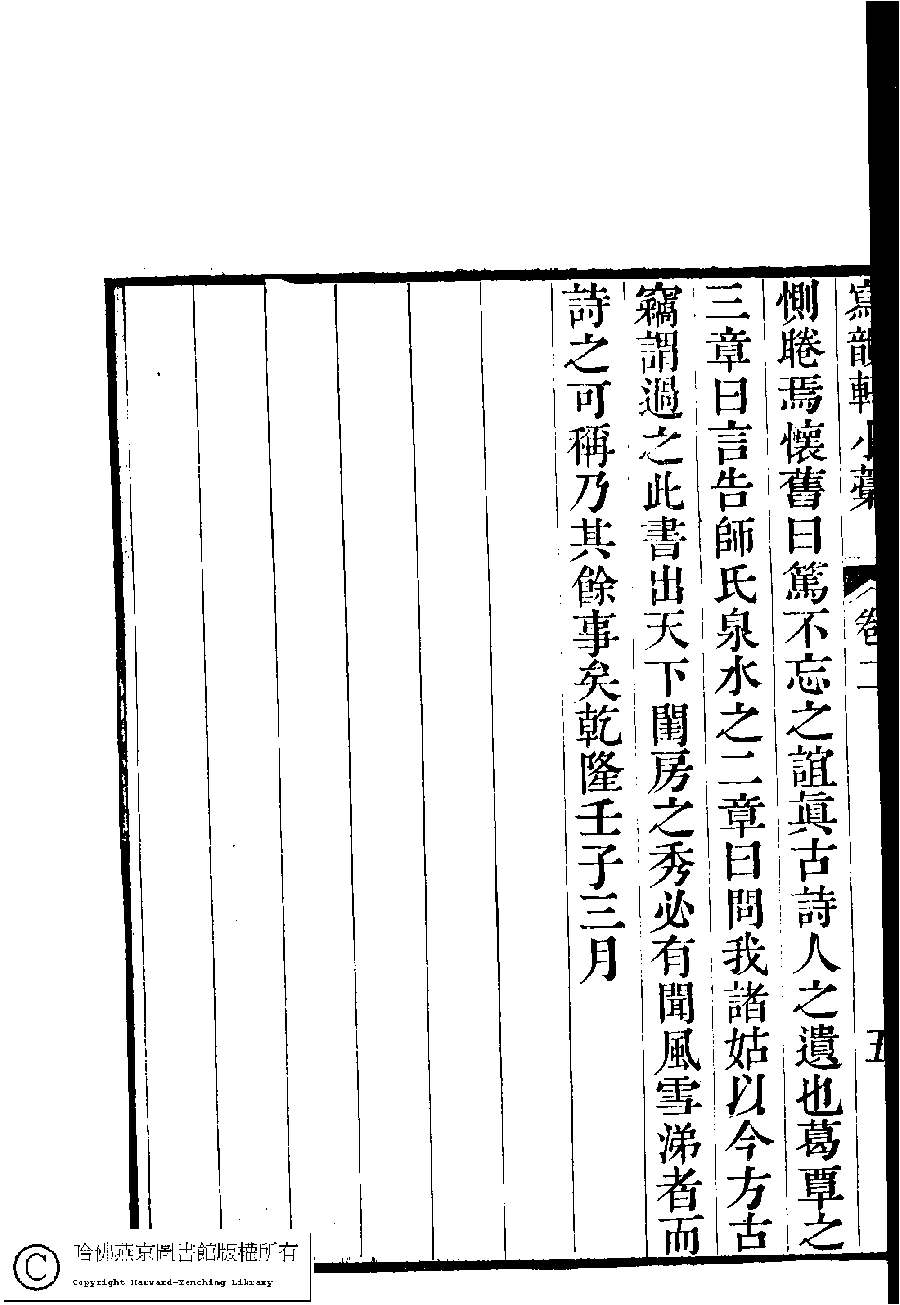 寫韻軒小藁 卷二 五
惻睠焉懷舊曰篤不忘之誼眞古詩人之遺也葛覃之
三章曰言告師氏泉水之二章曰問我諸姑以今方古
竊謂過之此書出天下閨房之秀必有聞風雪涕者而
詩之可稱乃其餘事矣乾隆壬子三月
哈佛燕京圖書館版權所有
Copyright Harvard-Yenching Library